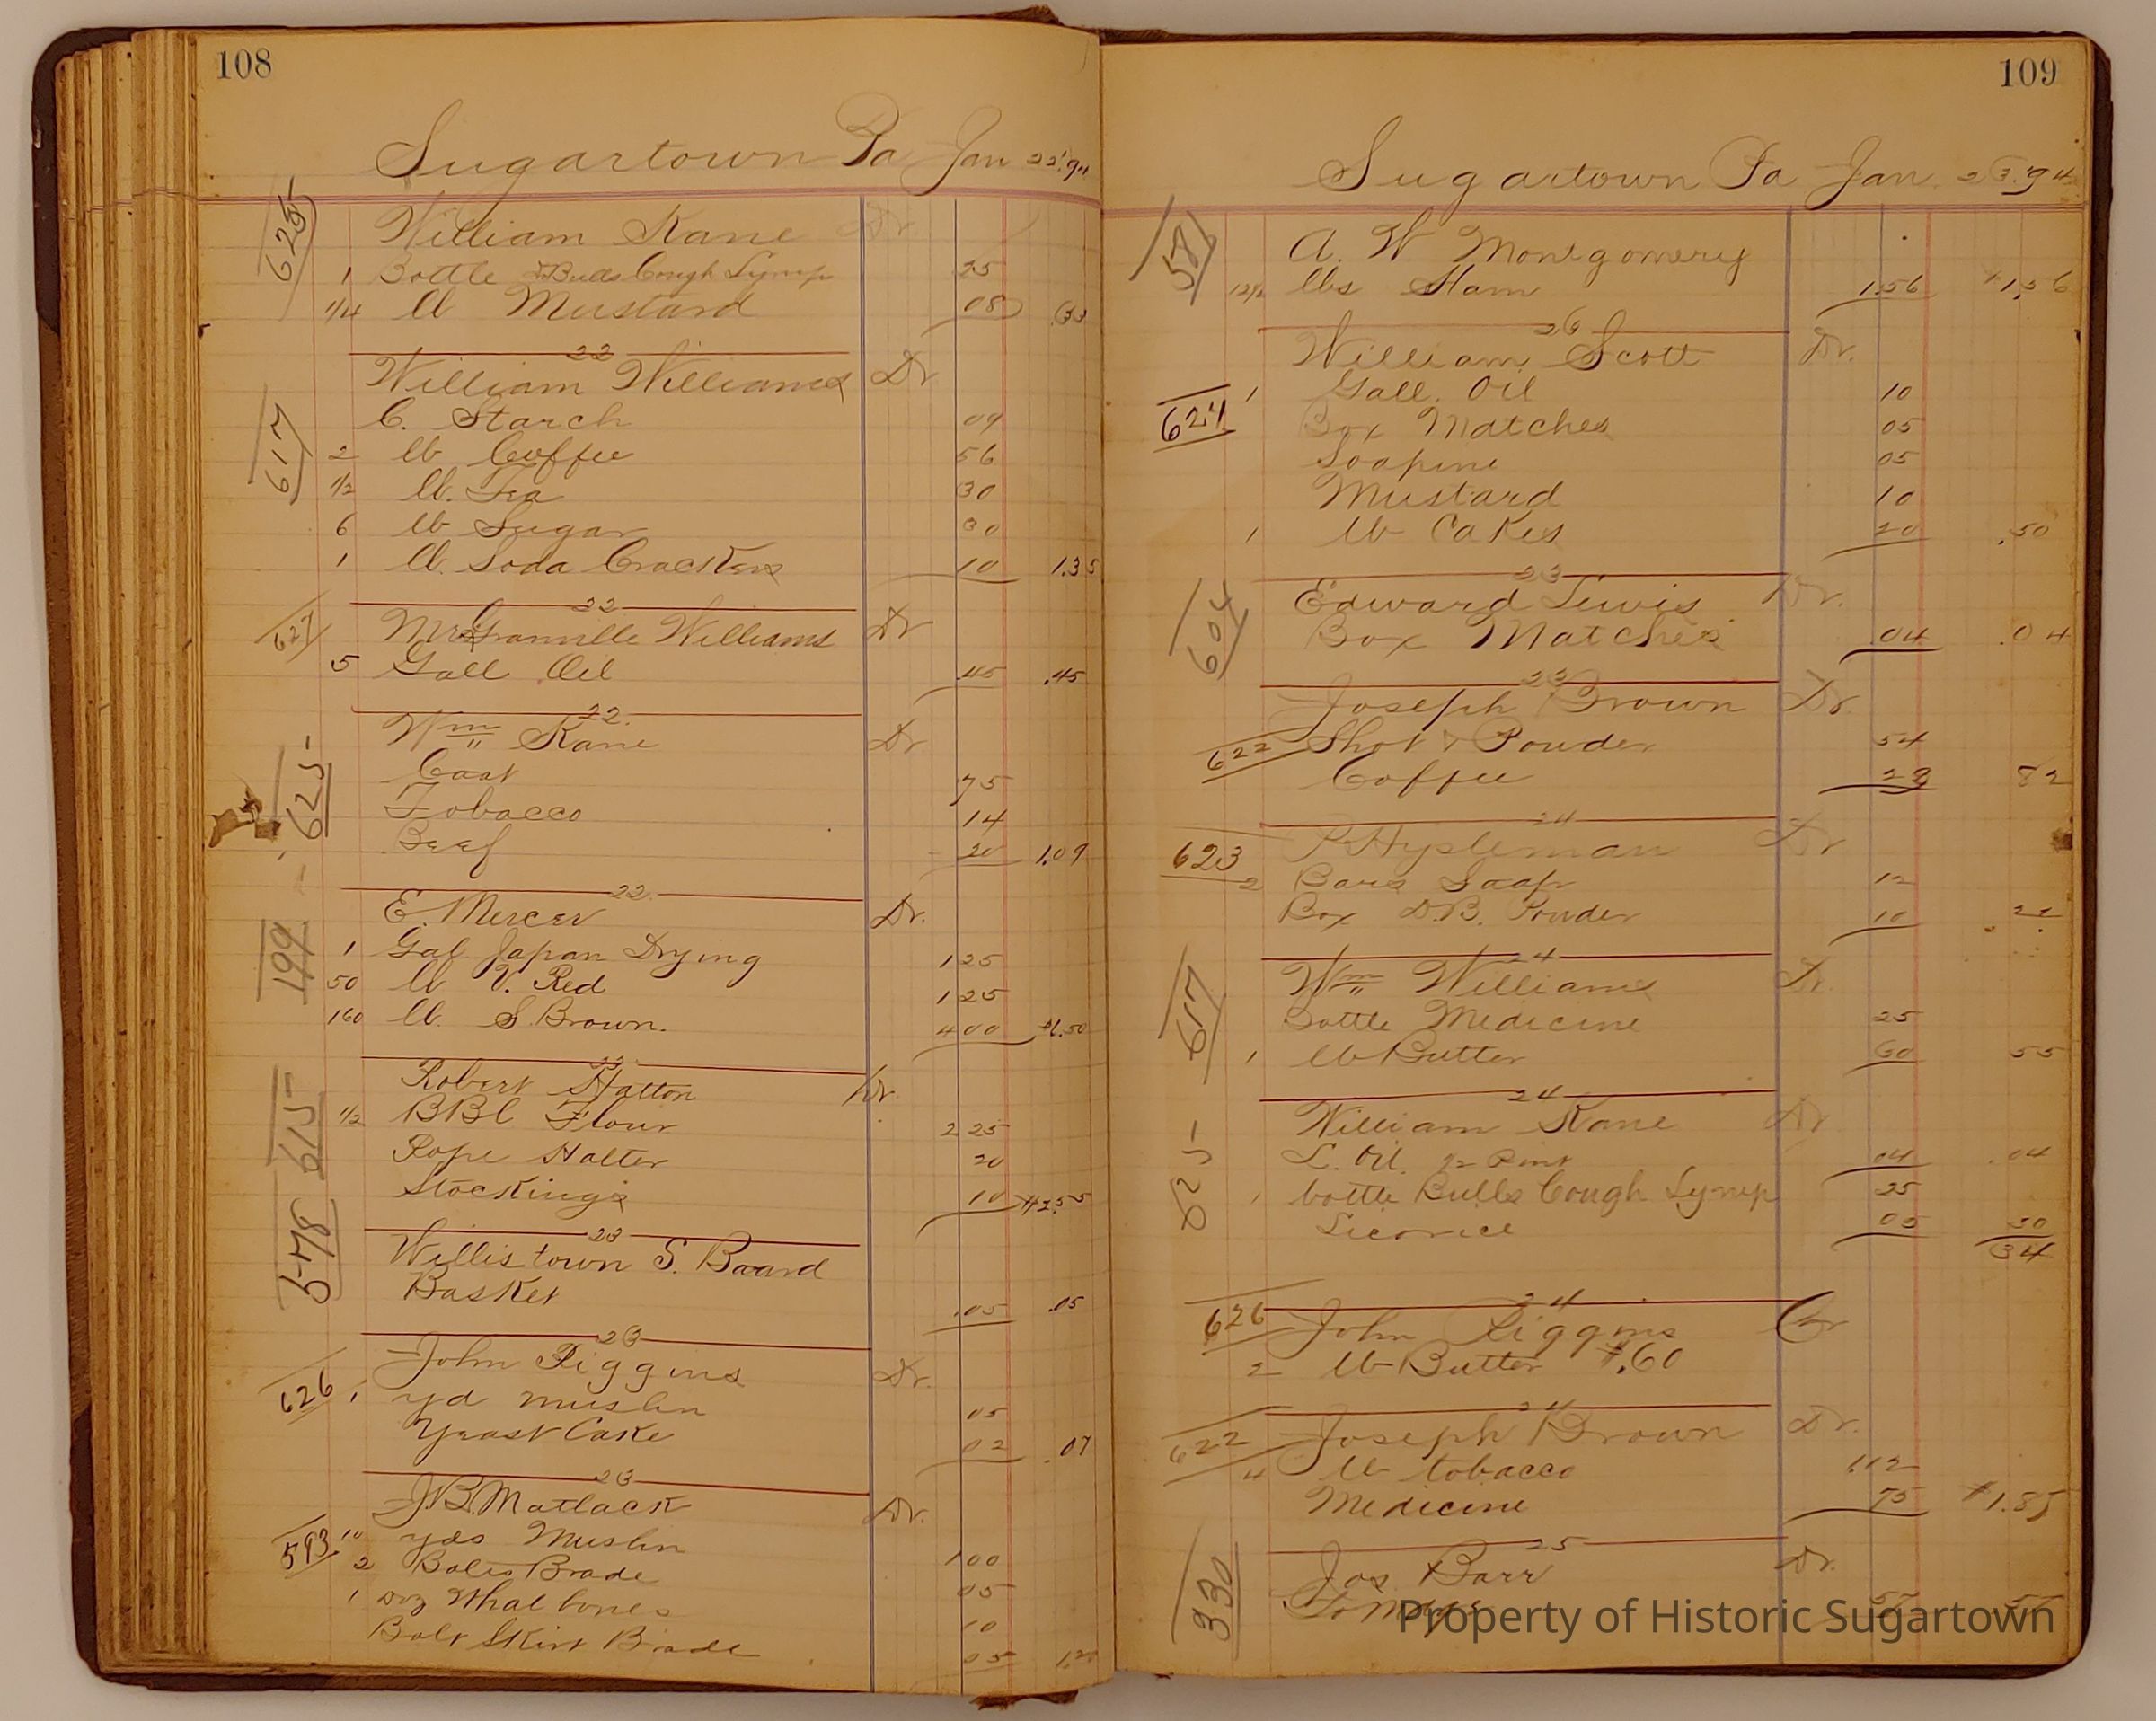 108
Sugartown Pa Jan 22 '94
625
William Kane Dr
1 Bottle Bulls Cough Syrup 25
1/4 lb Mustard 08 .33
22
William Williams Dr
617
C. Starch 09
2 lb Coffee 56
1/2 lb. Tea 30
6 lb Sugar 30
1 lb. Soda Crackers 10 1.35
22
627
Mrs Granville Williams Dr
5 Gall Oil .45 .45
22.
625
Wm Kane Dr
Coat 75
Tobacco 14
Beef 20 1.09
22.
199
E. Mercer Dr.
1 Gal Japan Drying 1 25
50 lb V. Red 1 25
160 lb. S. Brown. 4 00 $6.50
23
615
Robert Hatton Dr.
1/2 BBl Flour 2 25
Rope Halter 20
Stockings 10 $2.55
23
578
Willistown S. Board
Basket .05 .05
23
John Riggins Dr.
626 1 yd muslin 05
Yeast Cake 02 .07
23
J.B. Matlack Dr.
593 10 yds Muslin 1 00
2 Bolts Brade 05
1 Doz Whal bones 10
Bolt Skirt Brade 05 1.20
109
Sugartown Pa Jan. 23. '94
581
A. W Montgomery
12 1/2 lbs Ham 1.56 $1.56
23
William Scott Dr.
1 Gall. Oil 10
624 Box Matches 05
Soapine 05
Mustard 10
1 lb Cakes 20 .50
23
604
Edward Lewis Dr.
Box Matches .04 .04
23
Joseph Brown Dr.
622 Shot & Powder 54
Coffee 28 82
24
P Hypleman Dr
623
2 Bars Soap 12
Box D.B. Powder 10 22
24
617
Wm Williams Dr.
Bottle Medicine 25
1 lb Butter 30 55
24
625
William Kane Dr
L. Oil. 1/2 Pint 04 .04
1 bottle Bulls Cough Syrup 25
Licorice 05 30
34
24
626
John Riggins Cr
2 lb Butter $.60
24
622
Joseph Brown Dr.
4 lb tobacco 1.12
Medicine 75 $1.85
25
330
Jos Barr Dr.
Property of Historic Sugartown